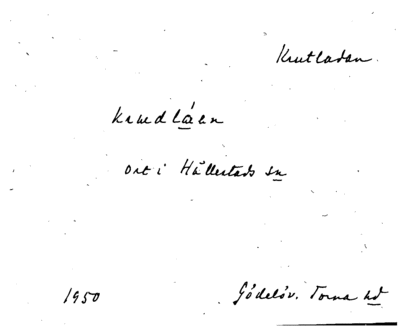 Krutladan.
krudláan
ort i Hällestads sn
1950 Gödelöv. Torna hd